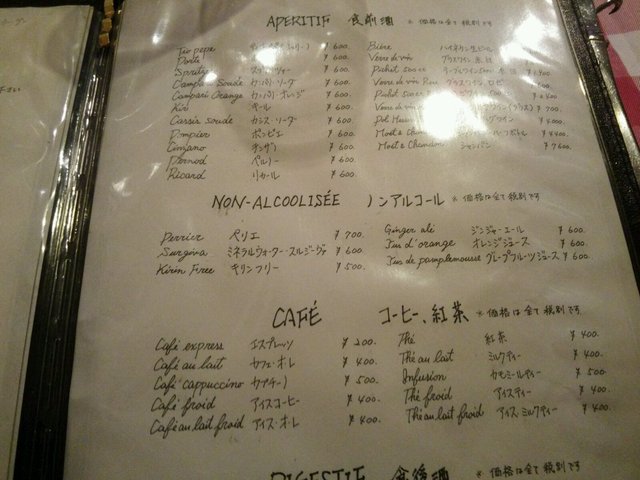 APERITIF 食前酒 ※価格は全て税別です
Tio pepe ¥600.
Porto ¥600.
Spritzer スプリッツァー ¥600.
Campari Soude カンパリ・ソーダ ¥600.
Campari Orange カンパリ・オレンジ ¥600.
Kir キール ¥600.
Cassis soude カシス・ソーダ ¥600.
Pompier ポンピエ ¥600.
Cinzano チンザノ ¥600.
Pernod ペルノー ¥600.
Ricard リカール ¥600.
Bière ハイネケン生ビール
Verre de vin グラスワイン 赤 白
Pichet 500cc
Verre de vin
Pichet
Verre de vin ¥700.
Pot
Moët & Chandon ハーフボトル ¥4400.
Moët & Chandon シャンパン ¥7600.
NON-ALCOOLISÉE ノンアルコール ※価格は全て税別です
Perrier ペリエ ¥700.
Surgiva ミネラルウォーター・スルジーヴァ ¥600.
Kirin Free キリンフリー ¥500.
Ginger alé ジンジャーエール ¥600.
Jus d'orange オレンジジュース ¥600.
Jus de pamplemousse グレープフルーツジュース ¥600.
CAFÉ コーヒー、紅茶 ※価格は全て税別です
Café express エスプレッソ ¥200.
Café au lait カフェ・オ・レ ¥400.
Café cappuccino カプチーノ ¥500.
Café froid アイスコーヒー ¥400.
Café au lait froid アイス・オ・レ ¥400.
Thé 紅茶 ¥400.
Thé au lait ミルクティー ¥400.
Infusion カモミールティー ¥500.
Thé froid アイスティー ¥400.
Thé au lait froid アイスミルクティー ¥400.
DIGESTIF 食後酒 ※価格は全て税別です